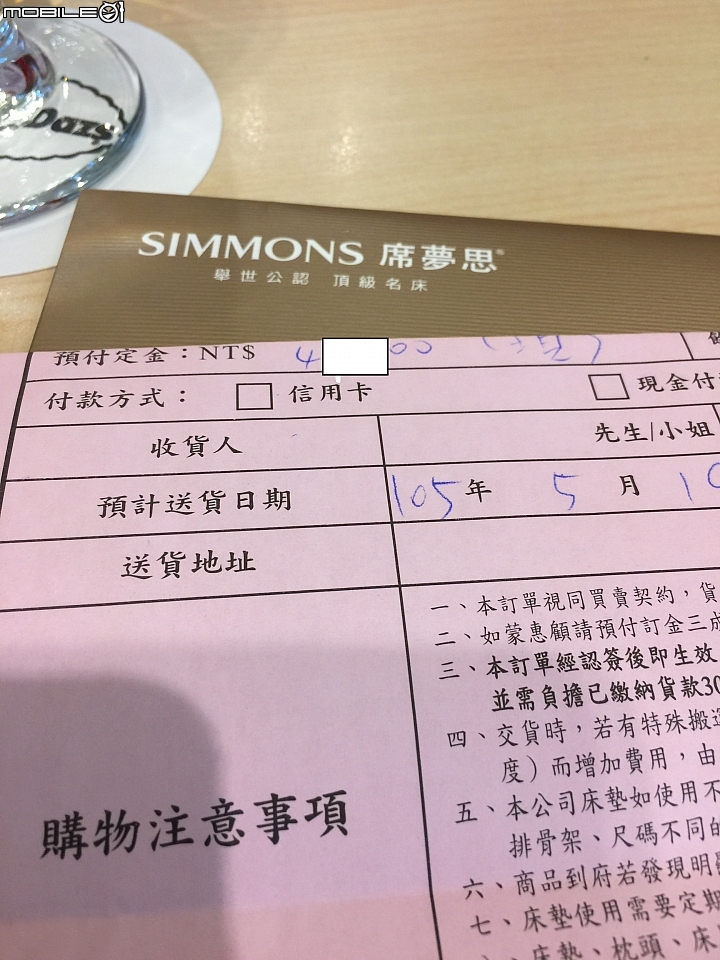 MOBILE01
Dazs
SIMMONS 席夢思®
舉世公認 頂級名床
預付定金：NT$ 4 00
付款方式： □ 信用卡 □ 現金付
收貨人 先生/小姐
預計送貨日期 105年 5月 1
送貨地址
購物注意事項
一、本訂單視同買賣契約，貨
二、如蒙惠顧請預付訂金三成
三、本訂單經認簽後即生效
並需負擔已繳納貨款30
四、交貨時，若有特殊搬運
度）而增加費用，由
五、本公司床墊如使用不
排骨架、尺碼不同的
六、商品到府若發現明顯
七、床墊使用需要定期
、床墊、枕頭、床